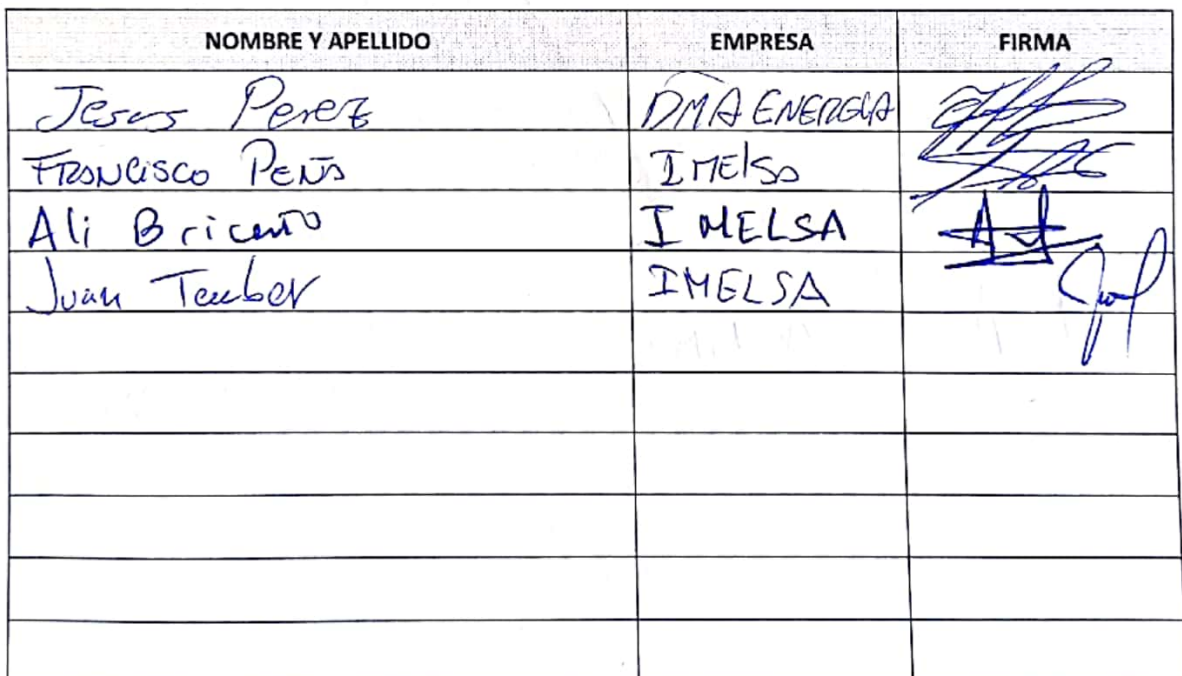 NOMBRE Y APELLIDO EMPRESA FIRMA
Jesus Perez DMA ENERGIA
FRANCISCO PEÑA IMELSA
Ali Briceño IMELSA
Juan Tauber IMELSA